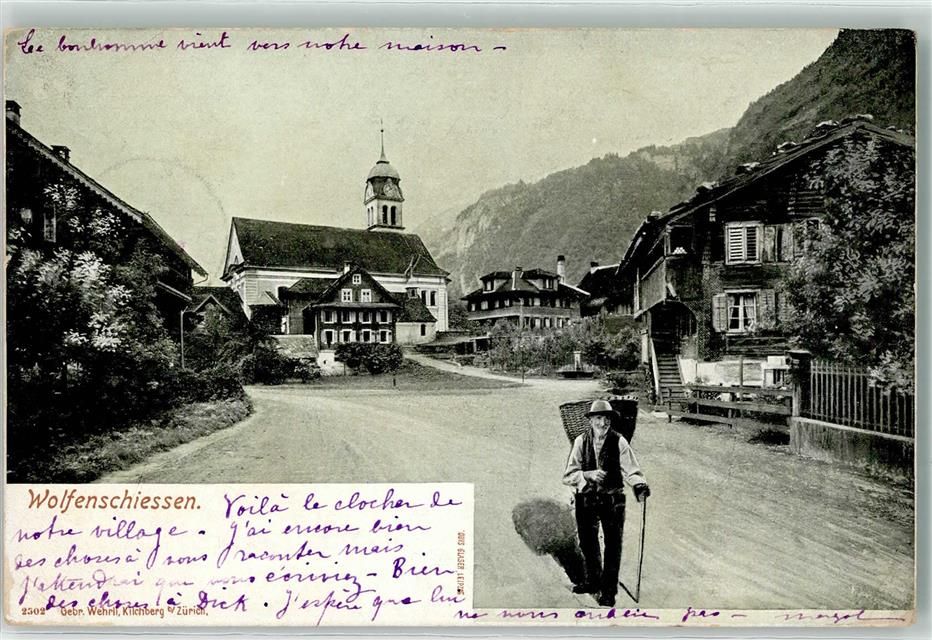 Le bonhomme vient vers notre maison -
Wolfenschiessen. Voilà le clocher de
notre village - J'ai encore bien
des choses à vous raconter mais
J'attendrai que vous écriviez - Bien
des choses à Dick. J'espère que lui
ne nous oublie pas -
2502 Gebr. Wehrli, Kilchberg b/Zürich.
LOUIS GLASER LEIPZIG